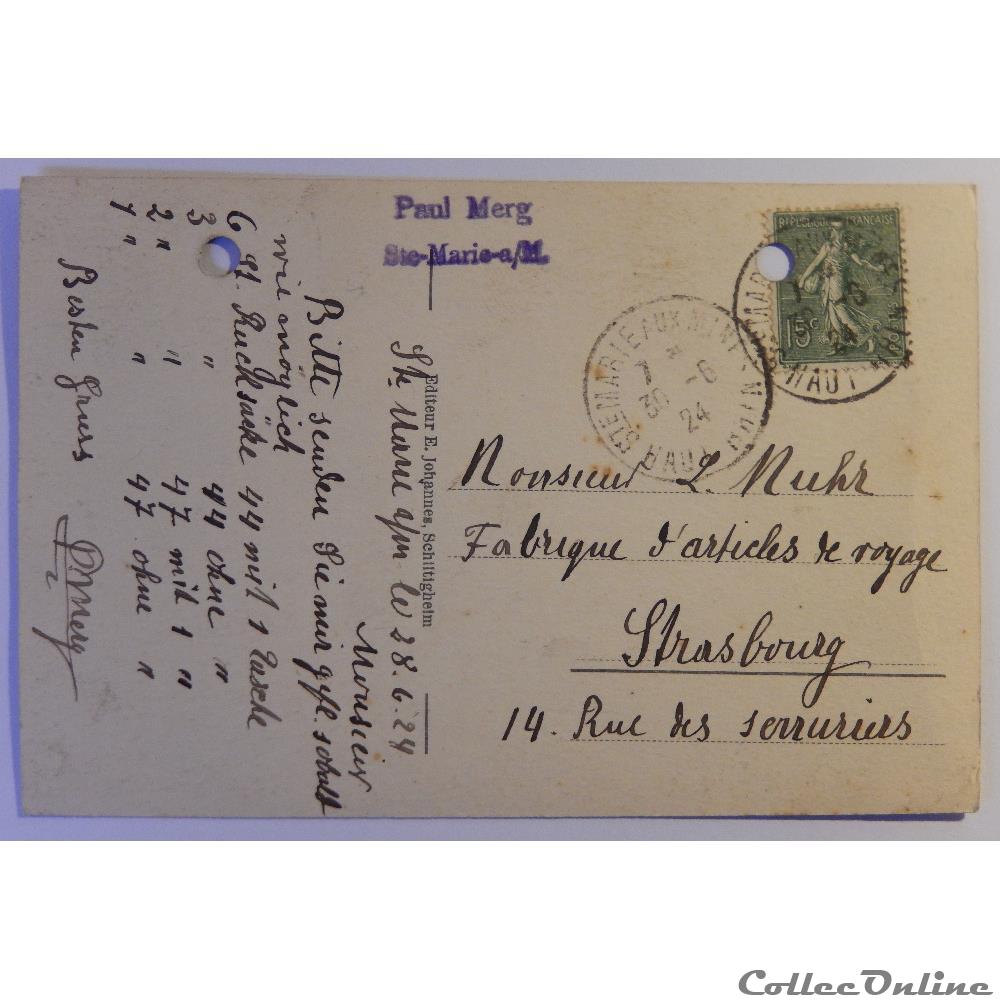 Paul Merg
Ste-Marie-a/M.
REPUBLIQUE FRANÇAISE
15c
POSTES
STE MARIE AUX MINES
HAUT-RHIN
7 *
30 -6
24
Editeur E. Johannes, Schiltigheim
Monsieur L. Nuhr
Fabrique d'articles de voyage
Strasbourg
14. Rue des serruriers
Ste Marie a/m le 28.6.24
Monsieur
Bitte senden Sie mir gefl. sobald
wie möglich
6 st. Rucksäcke 44 mit 1 Tasche
3 " " 44 ohne "
2 " " 47 mit 1 "
1 " " 47 ohne "
Besten Gruss PMerg
CollecOnline